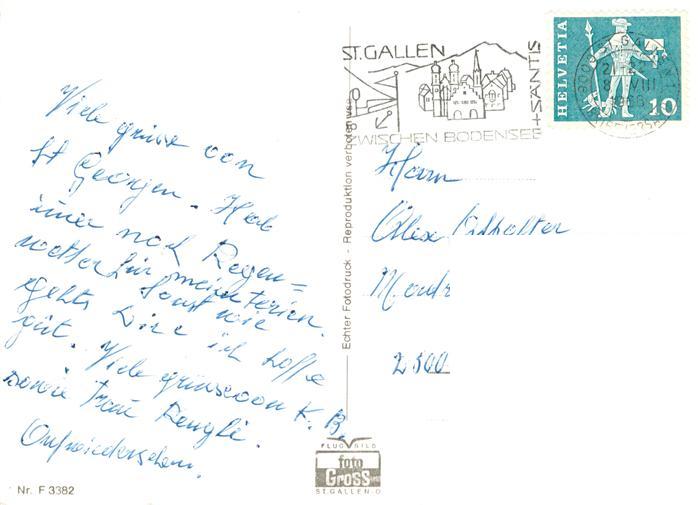 Viele grüsse von
St Georgen. Hab
imer noch Regen=
wetter für meine Ferien.
Sonst wie
gehts Dire ich hoffe
gut. Viele grüsse von K. B.
sowie Frau Renggli.
Aufwiedersehen.
Nr. F 3382
Echter Fotodruck - Reproduktion verboten
FLUGBILD
foto
Gross
ST.GALLEN-O
ST.GALLEN
+SÄNTIS
ZWISCHEN BODENSEE
HELVETIA
10
Herrn
Alex
2500